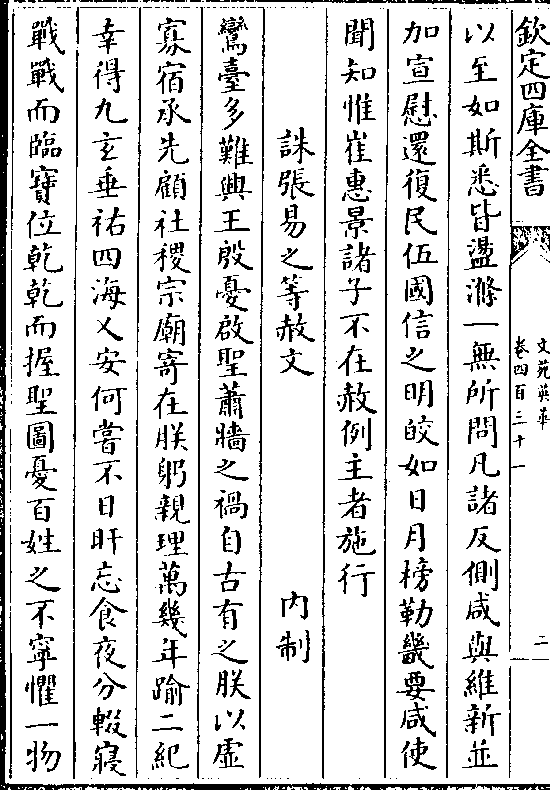 欽定四庫全書
文苑英華
卷四百三十一
二
以至如斯悉皆盪滌一無所問凡諸反側咸與維新並
加宣慰還復民伍國信之明皎如日月榜勒畿要咸使
聞知惟崔惠景諸子不在赦例主者施行
誅張易之等赦文 内制
鸞臺多難興王殷憂啟聖蕭牆之禍自古有之朕以虛
寡宿承先顧社稷宗廟寄在朕躬親理萬幾年踰二紀
幸得九玄垂祐四海乂安何嘗不日旰忘食夜分輟寢
戰戰而臨寶位乾乾而握聖圖憂百姓之不寧懼一物